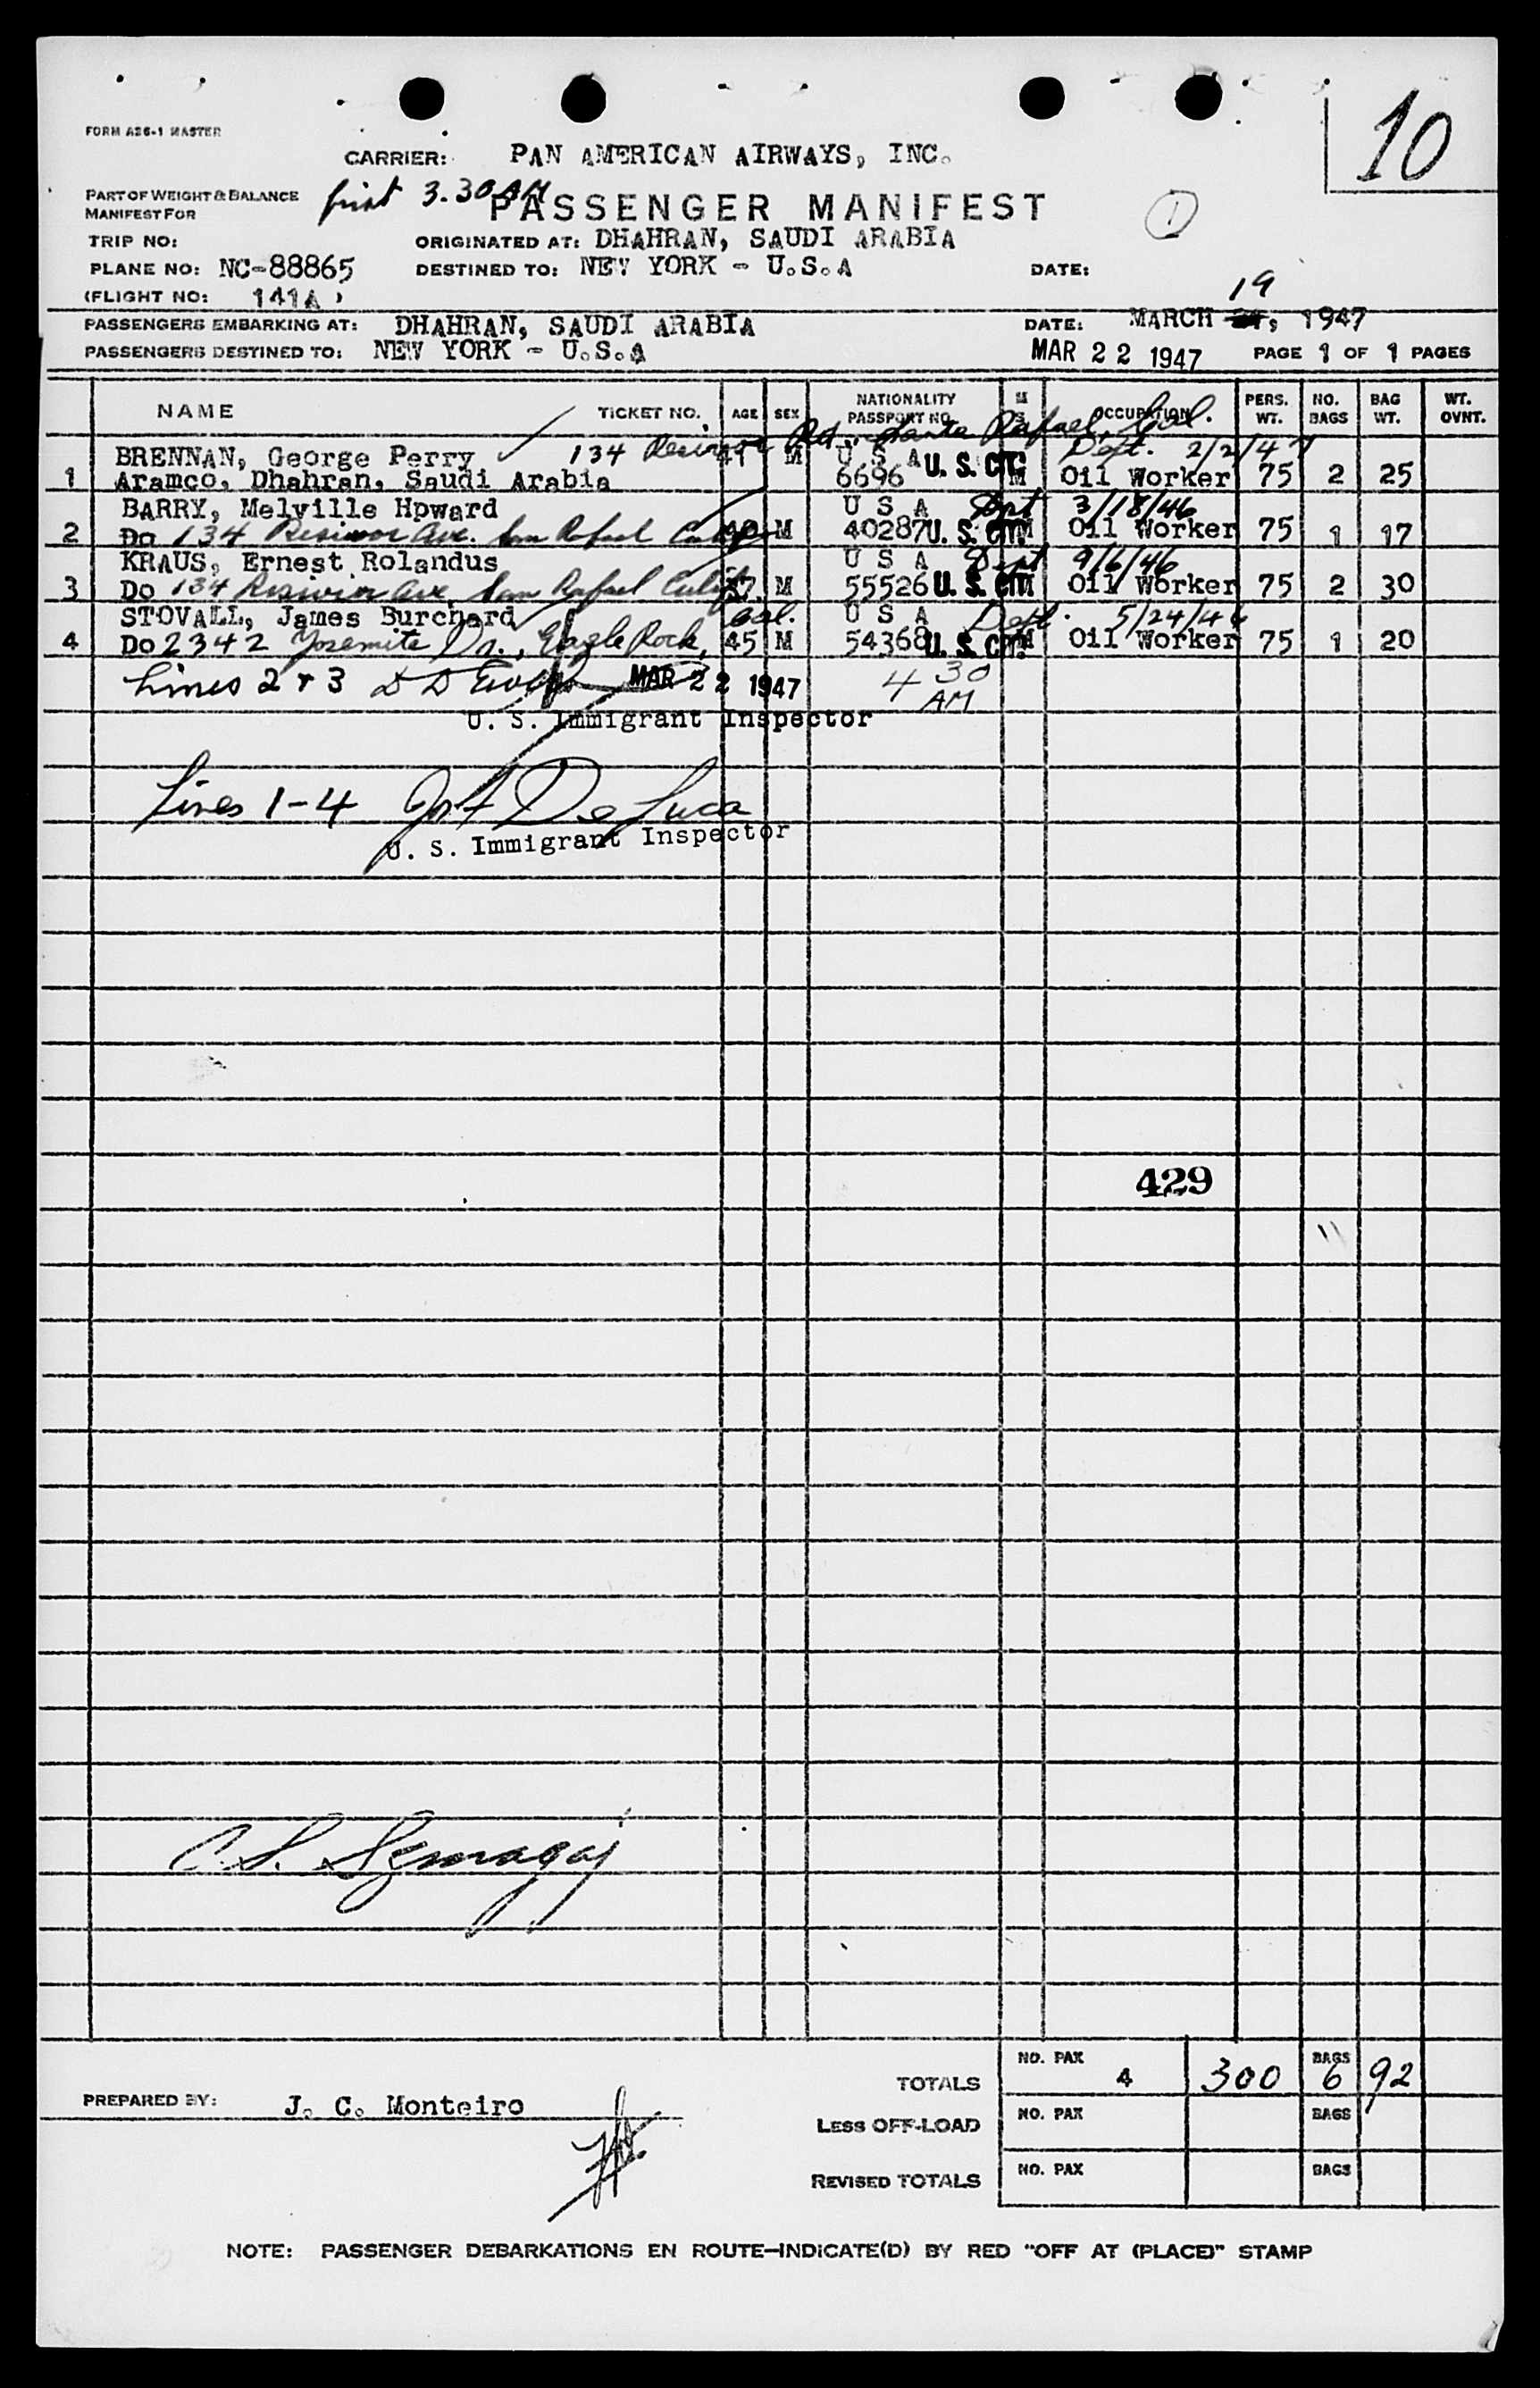 10
FORM A26-1 MASTER
CARRIER: PAN AMERICAN AIRWAYS, INC.
PART OF WEIGHT & BALANCE
MANIFEST FOR
first 3.30 AM
PASSENGER MANIFEST
1
TRIP NO:
ORIGINATED AT: DHAHRAN, SAUDI ARABIA
PLANE NO: NC-88865 DESTINED TO: NEW YORK - U.S.A DATE:
(FLIGHT NO: 141A )
19
PASSENGERS EMBARKING AT: DHAHRAN, SAUDI ARABIA DATE: MARCH , 1947
PASSENGERS DESTINED TO: NEW YORK - U.S.A MAR 22 1947 PAGE 1 OF 1 PAGES
NAME TICKET NO. AGE SEX NATIONALITY PASSPORT NO. M S OCCUPATION PERS. WT. NO. BAGS BAG WT. WT. OVNT.
BRENNAN, George Perry 134 Rd., Santa Rafael, Cal. M U S A Dept. 2/2/47
1 Aramco, Dhahran, Saudi Arabia 6696 U. S. CIT. M Oil Worker 75 2 25
BARRY, Melville Hpward U S A Dpt 3/18/46
2 Do 134 Ave. San Rafael M 40287 U. S. CIT. M Oil Worker 75 1 17
KRAUS, Ernest Rolandus U S A Dept 9/6/46
3 Do 134 Ave. San Rafael Calif M 55526 U. S. CIT. M Oil Worker 75 2 30
STOVALL, James Burchard Cal. U S A Dept. 5/24/46
4 Do 2342 Yosemite Dr., Eagle Rock, 45 M 54368 U. S. CIT. M Oil Worker 75 1 20
Lines 2 & 3 MAR 22 1947 4 30 AM
U. S. Immigrant Inspector
Lines 1-4 De Luca
U. S. Immigrant Inspector
429
TOTALS NO. PAX 4 300 BAGS 6 92
PREPARED BY: J. C. Monteiro
LESS OFF-LOAD NO. PAX BAGS
REVISED TOTALS NO. PAX BAGS
NOTE: PASSENGER DEBARKATIONS EN ROUTE—INDICATE(D) BY RED "OFF AT (PLACE)" STAMP